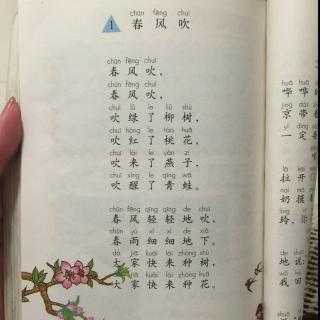 chūn fēng chuī
1 春风吹
chūn fēng chuī
春风吹，
chūn fēng chuī
春风吹，
chuī lǜ le liǔ shù
吹绿了柳树，
chuī hóng le táo huā
吹红了桃花，
chuī lái le yàn zi
吹来了燕子，
chuī xǐng le qīng wā
吹醒了青蛙。
chūn fēng qīng qīng de chuī
春风轻轻地吹，
chūn yǔ xì xì de xià
春雨细细地下。
dà jiā kuài lái zhòng shù
大家快来种树，
dà jiā kuài lái zhòng huā
大家快来种花。
huā huā
哗哗的
jīng dài
京带
yí dìng
一定
lā kāi
拉开
nǎi
奶
玲，
地说：
我